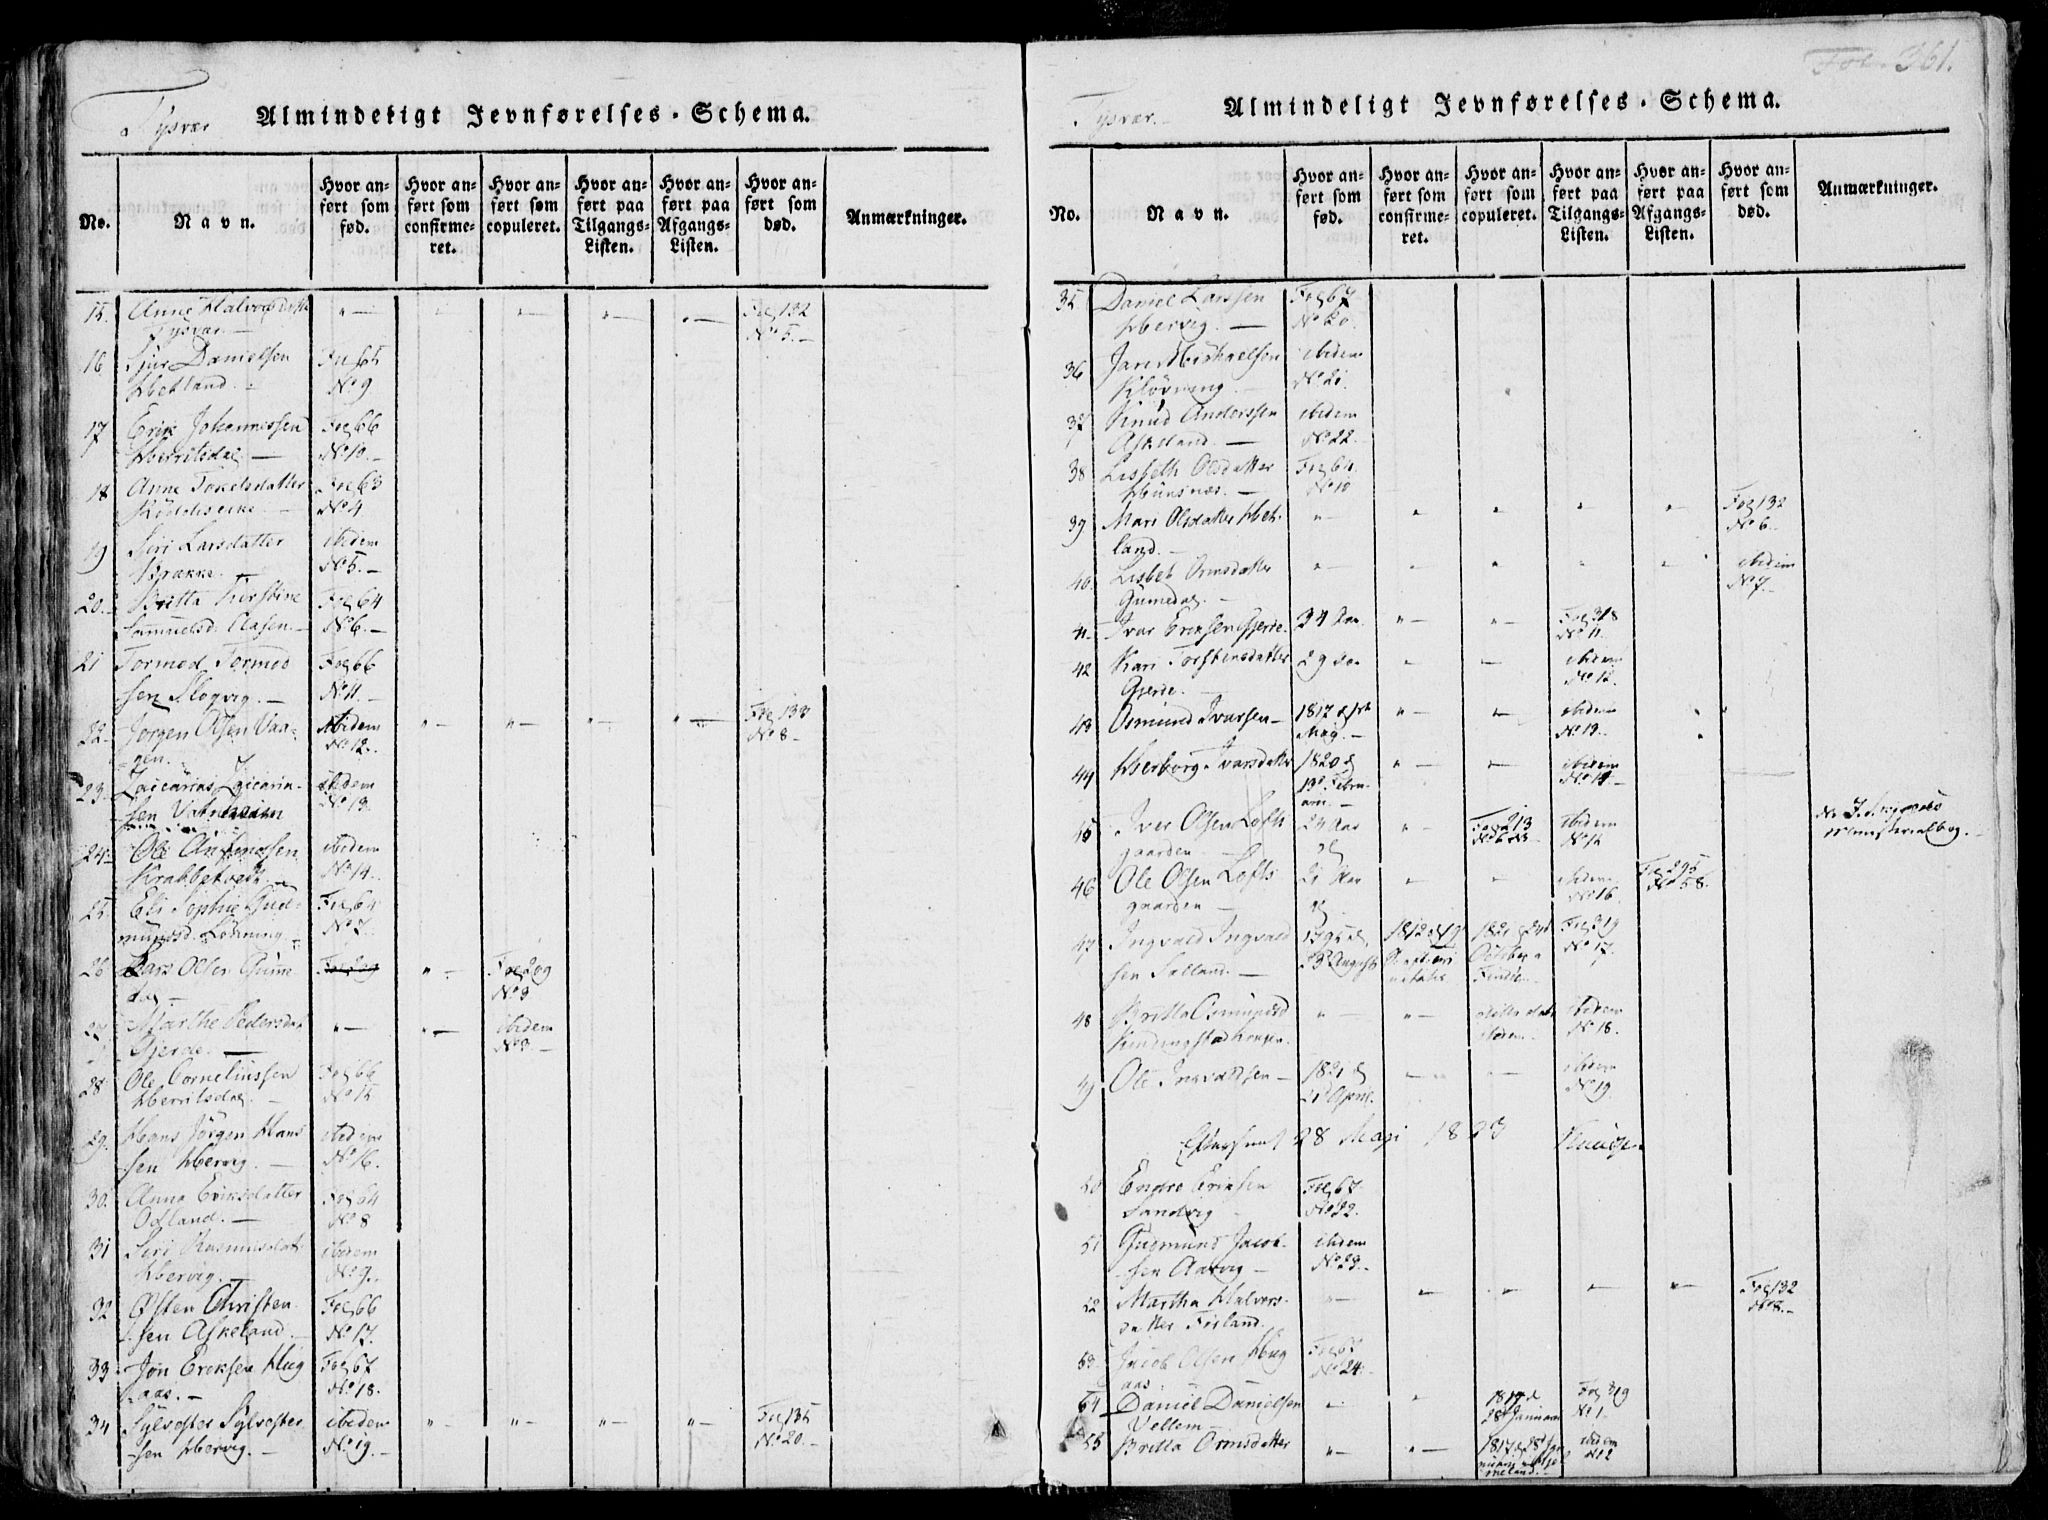 Tysvær
Almindeligt Jevnførelses-Schema.
No.
Navn.
Hvor anført som fød.
Hvor anført som confirmeret.
Hvor anført som copuleret.
Hvor anført paa Tilgangs-Listen.
Hvor anført paa Afgangs-Listen.
Hvor anført som død.
Anmærkninger.
15. Anne Halvorsdatter " — " " — " — " — Fol 132
Tysvær. — No 5. —
16 Sjur Danielsen Fol 65
Hetland. No 9
17 Erik Johannessen Fol 66
Herritsdal — No 10. —
18 Anne Torkelsdatter Fol 63
No 4
19 Siri Larsdatter ibidem
Brække. — No 5. —
20. Britta Kirstine Fol 64
Samuelsd. No 6. —
21 Tormod Tormod Fol 66
sen Slogvig. — No 11. —
22. Jørgen Olsen Vaa- ibidem " — " — " — " — Fol 133
gen. No 12. No 8 —
23. Zacarias Zacaria- ibidem
sen No 13.
24. Ole ibidem
Krabbetveit. — No 14. —
25. Eli Sophie Gud- Fol 64
mundsd. No 7
26 Lars Olsen Gumme- Fol 209 " — Fol 209
dal — No 3
27. Marthe Pedersdat " — " — ibidem
Gjerde. — No 3. —
28 Ole Corneliussen Fol 66
Herritsdal. — No 15
29. Hans Jørgen Hans ibidem
sen Hervig. — No 16.
30. Anna Eriksdatter Fol 64
Odland. — No 8
31 Siri Rasmusdat. ibidem
Hervig. — No 9.
32 Østen Christen- Fol 66
sen Askeland. — No 17.
33 Jon Eriksen Hug Fol 67
aas. — No 18.
34 Sylvester Sylvester ibidem " — " — " — " — Fol 135
sen Hervig. — No 19. — No 20. —
Fol. 361.
Tysvær.
Almindeligt Jevnførelses-Schema.
No.
Navn.
Hvor anført som fød.
Hvor anført som confirmeret.
Hvor anført som copuleret.
Hvor anført paa Tilgangs-Listen.
Hvor anført paa Afgangs-Listen.
Hvor anført som død.
Anmærkninger.
35 Daniel Larssen Fol 67
Hervig. — No 20.
36 Michaelsen ibidem
Kløvning. No 21.
37 Knud Anderssen ibidem
Askeland. — No 22.
38 Lisbeth Olsdatter Fol 64
No 10
39 Mari Olsdatter Het- " — " " " " — Fol 132
land. — No 6. —
40. Lisbet Ormsdatter " — " — " " " — ibidem
Gumedal. — No 7. —
41. Ivar Eriksen Gjerde. 34 Aar " — " — Fol 318
No 11.
42 Kari Torstensdatter 29 do " — " — ibidem
Gjerde. — No 12.
43 Osmund Ivarsen — 1817 d " — " — ibidem
May. — No 13.
44 Herborg Ivarsdatter 1820 d " — " — ibidem
13de Febru- No 14 —
arii. —
45 Iver Olsen Lofts 24 Aar " — Fol 213 ibidem
gaarden — No 15
46 Ole Olsen Lofts 21 Aar " — " — ibidem Fol 295
gaarden — No 16. No 58.
47 Ingvald Ingvald 1795 d 1812 1821 Fol 319
sen — August October No 17.
48 Britta Osmundsd " — " — ibidem
No 18.
49 Ole Ingvaldsen — 1821 d " — " — ibidem
April. No 19.
28 Maji 1823
50 Endre Eriksen Fol 67
Sandvig — No 22.
51 Gudmund Jacob- ibidem
sen Aarvig — No 23. —
52 Martha Halvors- " — " — " — " — " — Fol 132
datter No 8. —
53. Jacob Olsen Hug Fol 67
aas. No 24.
54 Daniel Danielsen " — " 1817 d Fol 319
Vellem — 28 Januarii No 1
55 Britta Ormsdatter " — " — 1817 d 28 Ja- ibidem
No 2